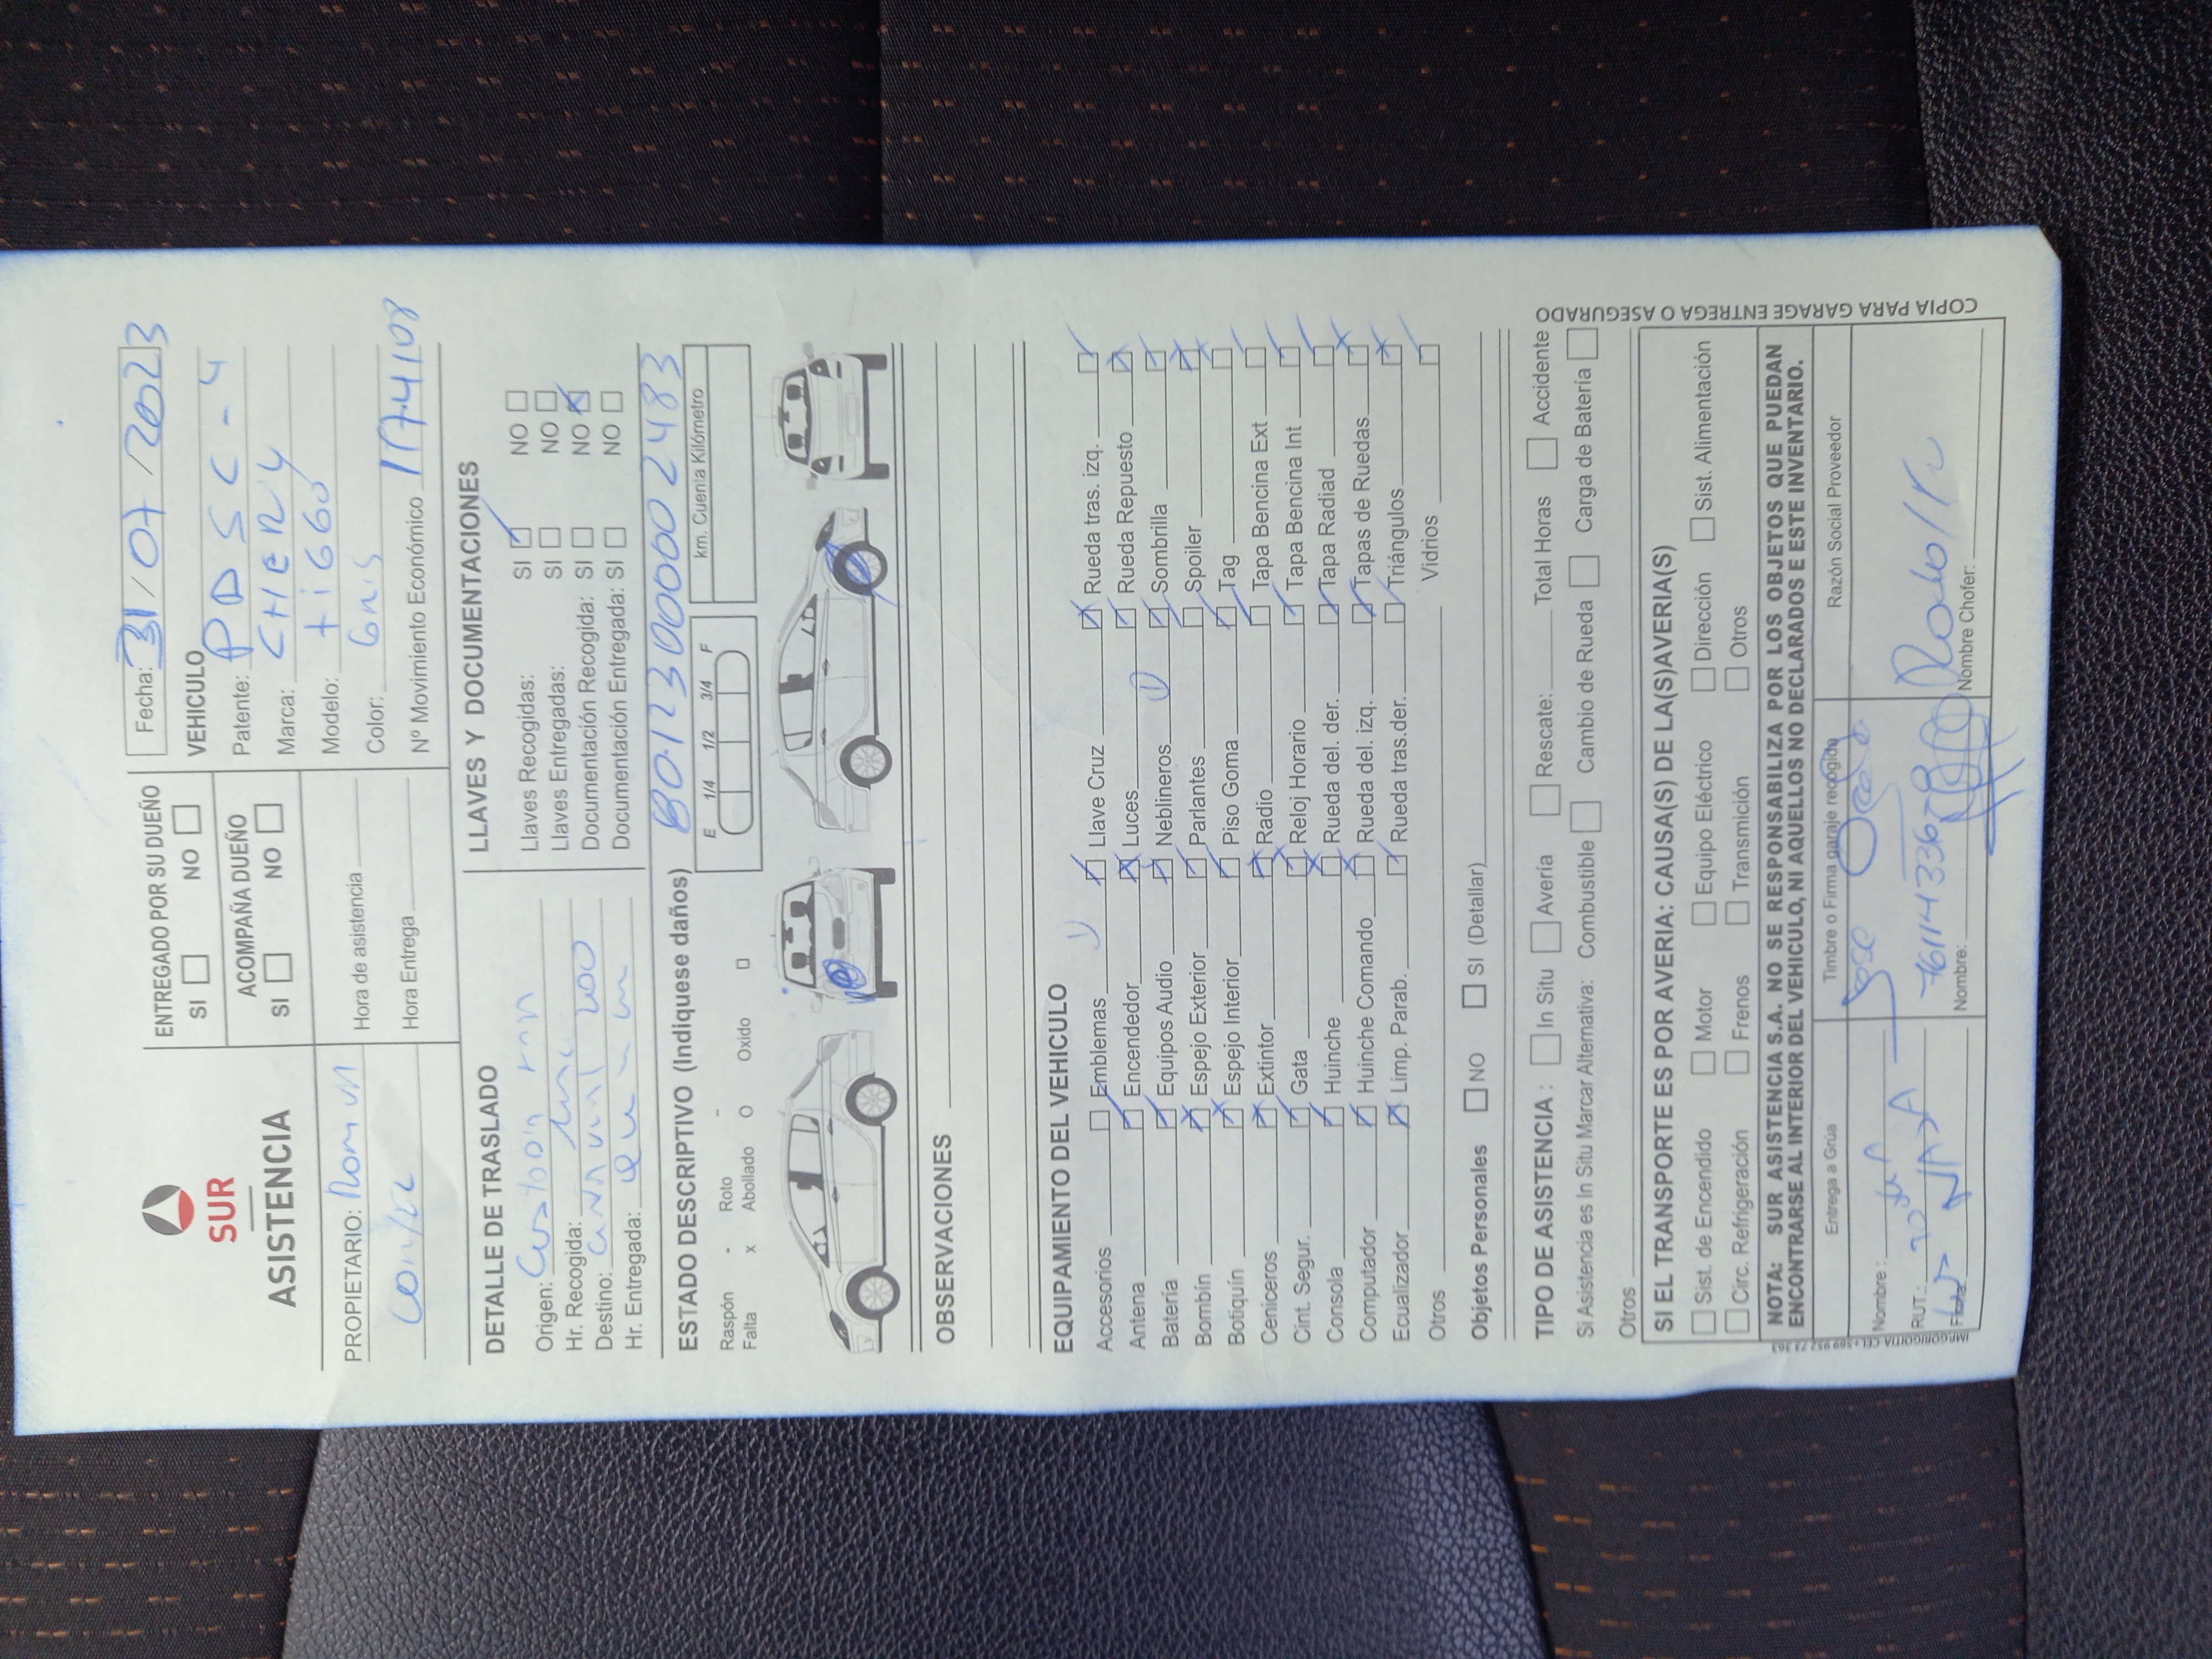 SUR
ASISTENCIA
ENTREGADO POR SU DUEÑO
SI NO
ACOMPAÑA DUEÑO
SI NO
Fecha: 31/07/2023
VEHICULO
Patente: PDSC-4
Marca: CHERY
Modelo: tiggo
Color: Gris
Nº Movimiento Económico 174108
PROPIETARIO:
Hora de asistencia
Hora Entrega
DETALLE DE TRASLADO
Origen:
Hr. Recogida:
Destino:
Hr. Entregada:
LLAVES Y DOCUMENTACIONES
Llaves Recogidas: SI NO
Llaves Entregadas: SI NO
Documentación Recogida: SI NO
Documentación Entregada: SI NO
ESTADO DESCRIPTIVO (Indiquese daños)
Raspón - Roto -
Falta x Abollado O Oxido □
E 1/4 1/2 3/4 F
km. Cuenta Kilómetro
OBSERVACIONES
EQUIPAMIENTO DEL VEHICULO
Accesorios Emblemas Llave Cruz Rueda tras. izq.
Antena Encendedor Luces Rueda Repuesto
Batería Equipos Audio Neblineros Sombrilla
Bombín Espejo Exterior Parlantes Spoiler
Botiquín Espejo Interior Piso Goma Tag
Ceniceros Extintor Radio Tapa Bencina Ext
Cint. Segur. Gata Reloj Horario Tapa Bencina Int
Consola Huinche Rueda del. der. Tapa Radiad
Computador Huinche Comando Rueda del. izq. Tapas de Ruedas
Ecualizador Limp. Parab. Rueda tras.der. Triángulos
Otros Vidrios
Objetos Personales NO SI (Detallar)
TIPO DE ASISTENCIA : In Situ Avería Rescate: Total Horas Accidente
Si Asistencia es In Situ Marcar Alternativa: Combustible Cambio de Rueda Carga de Batería
Otros
SI EL TRANSPORTE ES POR AVERIA: CAUSA(S) DE LA(S)AVERIA(S)
Sist. de Encendido Motor Equipo Eléctrico Dirección Sist. Alimentación
Circ. Refrigeración Frenos Transmición Otros
NOTA: SUR ASISTENCIA S.A. NO SE RESPONSABILIZA POR LOS OBJETOS QUE PUEDAN
ENCONTRARSE AL INTERIOR DEL VEHICULO, NI AQUELLOS NO DECLARADOS E ESTE INVENTARIO.
Entrega a Grúa Timbre o Firma garaje recogida Razón Social Proveedor
Nombre :
RUT.:
Firma:
Jose
Nombre:
Nombre Chofer:
COPIA PARA GARAGE ENTREGA O ASEGURADO